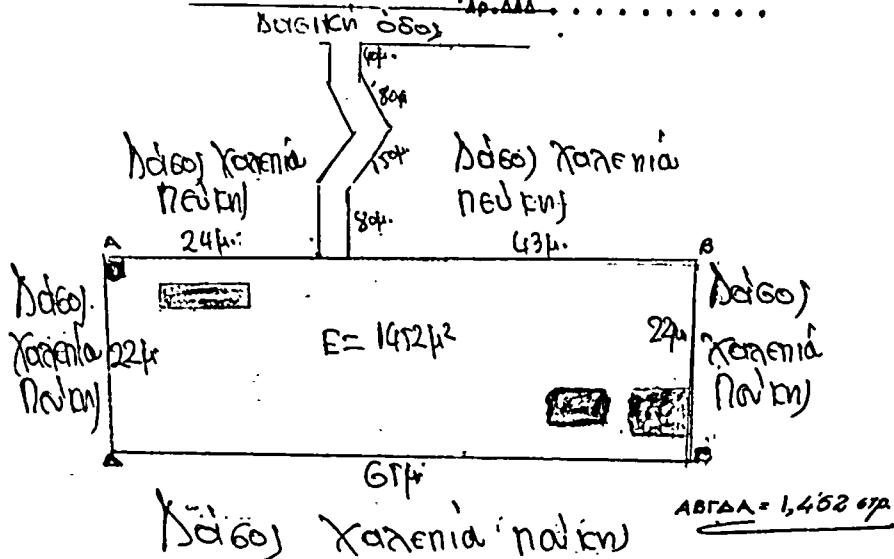 Αρ.ΔΔΔ
Δασική οδος
40μ.
80μ
50μ
80μ.
Δάσος χαλεπία
πεύκης
Δάσος χαλεπία
πεύκης
24μ.
43μ.
Α
Β
Δάσος
χαλεπία
πεύκης
22μ
Ε= 1452μ²
22μ
Δάσος
χαλεπία
πεύκης
Δ
65μ
Δάσος χαλεπία πεύκης
ΑΒΓΔΑ = 1,452 στρ